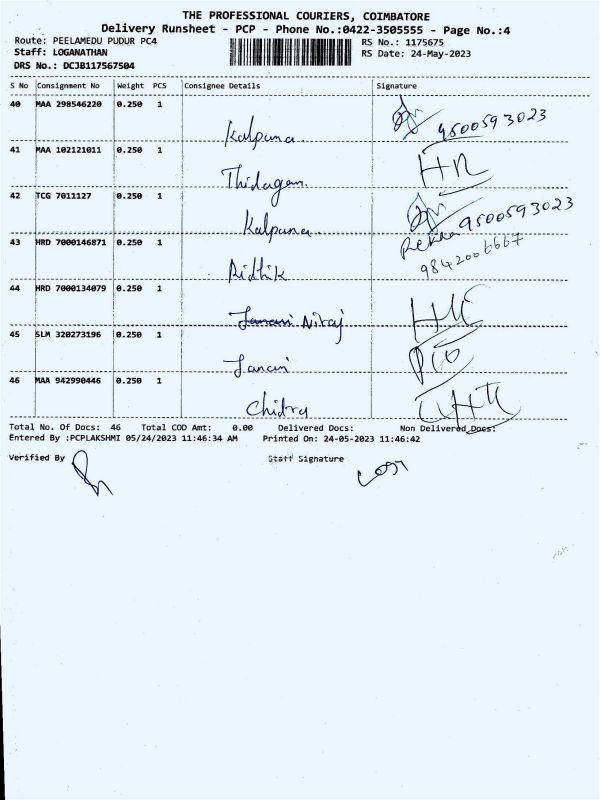 THE PROFESSIONAL COURIERS, COIMBATORE
Delivery Runsheet - PCP - Phone No.:0422-3505555 - Page No.:4
Route: PEELAMEDU PUDUR PC4 RS No.: 1175675
Staff: LOGANATHAN RS Date: 24-May-2023
DRS No.: DCJB117567504
S No Consignment No Weight PCS Consignee Details Signature
40 MAA 298546220 0.250 1
Kalpana 9500593023
41 MAA 102121011 0.250 1
42 TCG 7011127 0.250 1
Kalpana 9500593023
43 HRD 7000146871 0.250 1
Ridhik 9842006667
44 HRD 7000134079 0.250 1
Niraj
45 SLM 320273196 0.250 1
Janani
46 MAA 942990446 0.250 1
Chitra
Total No. Of Docs: 46 Total COD Amt: 0.00 Delivered Docs: Non Delivered Docs:
Entered By :PCPLAKSHMI 05/24/2023 11:46:34 AM Printed On: 24-05-2023 11:46:42
Verified By Staff Signature